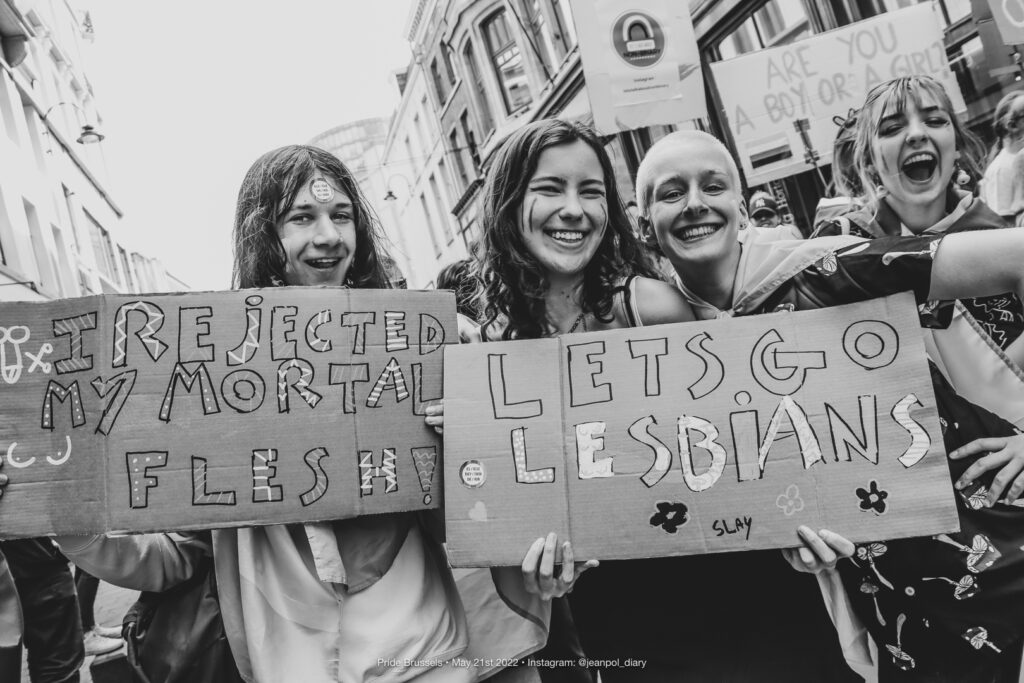 ARE YOU
A BOY OR A GIRL?
I REJECTED
MY MORTAL
FLESH!
LETS GO
LESBIANS
SLAY
Instagram
Pride Brussels • May 21st 2022 • Instagram: @jeanpol_diary